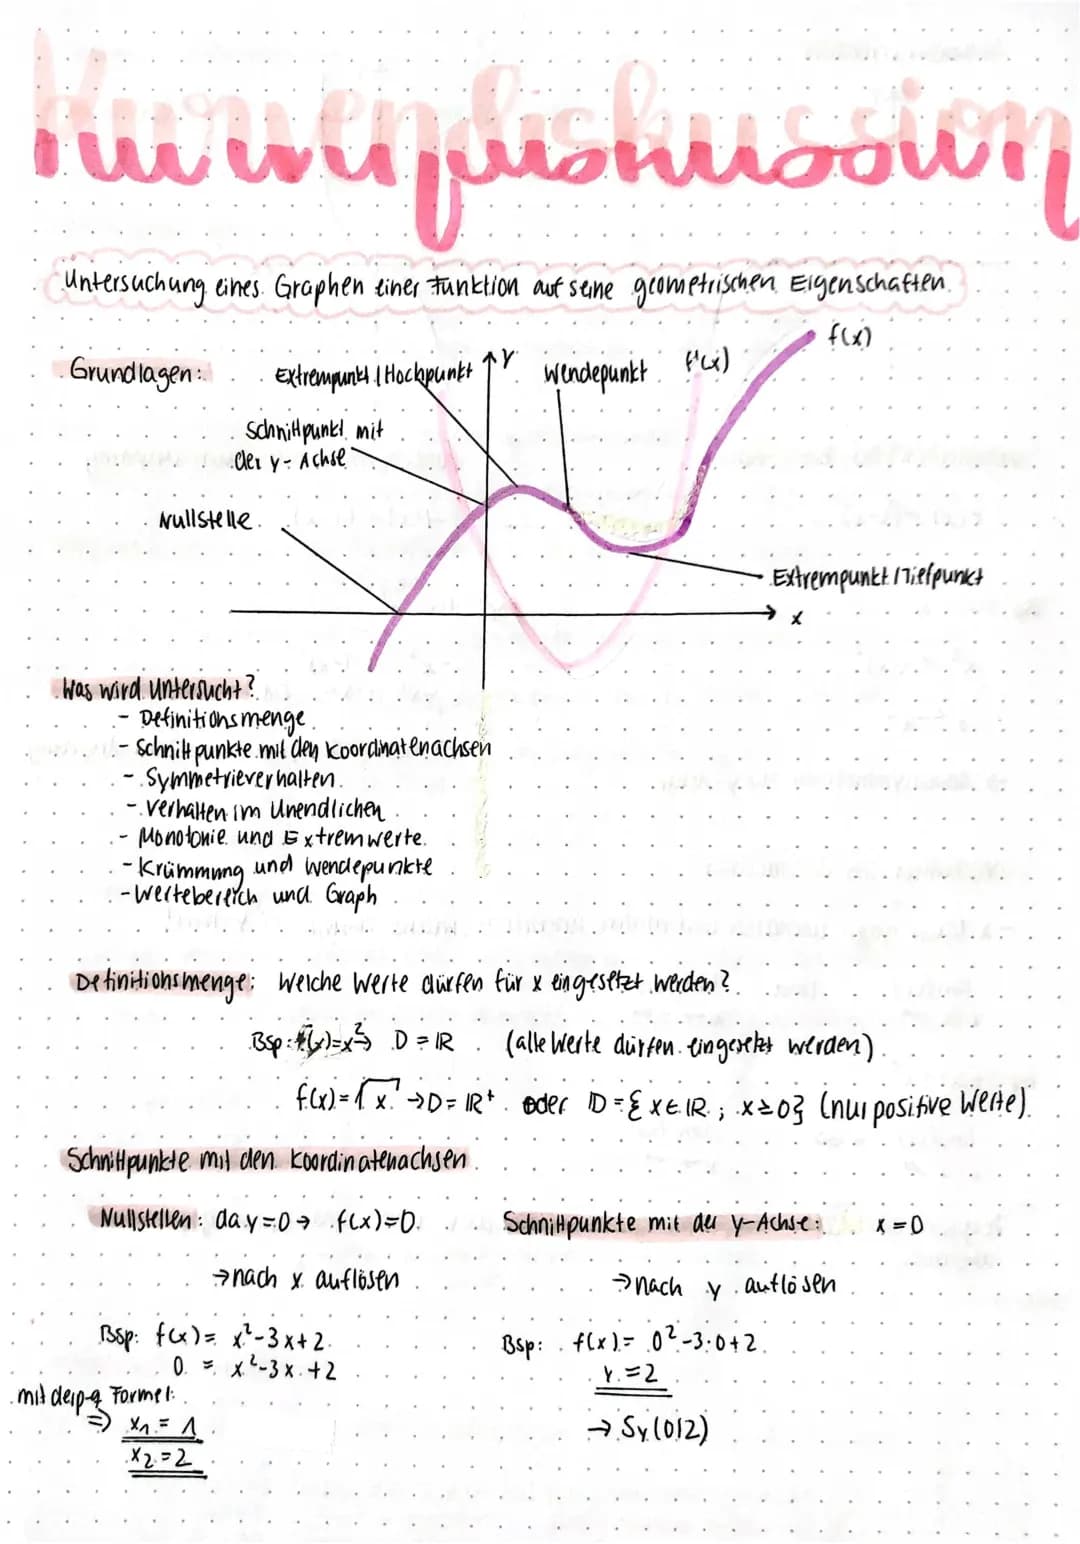 Kurvendiskussion
Untersuchung eines Graphen einer Funktion auf seine geometrischen Eigenschaften.
Grundlagen:
Extrempunkt / Hochpunkt
y
Wendepunkt
f'(x)
f(x)
Schnittpunkt mit
der y-Achse
Nullstelle
Extrempunkt / Tiefpunkt
x
Was wird untersucht?
- Definitionsmenge
- Schnittpunkte mit den Koordinatenachsen
- Symmetrieverhalten
- Verhalten im Unendlichen
- Monotonie und Extremwerte
- Krümmung und Wendepunkte
- Wertebereich und Graph
Definitionsmenge: Welche Werte dürfen für x eingesetzt werden?
Bsp: f(x)=x² → D = ℝ (alle Werte dürfen eingesetzt werden)
f(x)=√x → D = ℝ⁺ oder D = { x ∈ ℝ ; x ≥ 0} (nur positive Werte)
Schnittpunkte mit den Koordinatenachsen
Nullstellen: da y=0 → f(x)=0
→ nach x auflösen
Bsp: f(x) = x²-3x+2
0 = x²-3x+2
mit der p-q Formel:
⇒ x₁ = 1
x₂ = 2
Schnittpunkte mit der y-Achse: x = 0
→ nach y auflösen
Bsp: f(x) = 0²-3·0+2
y = 2
→ Sy (0|2)